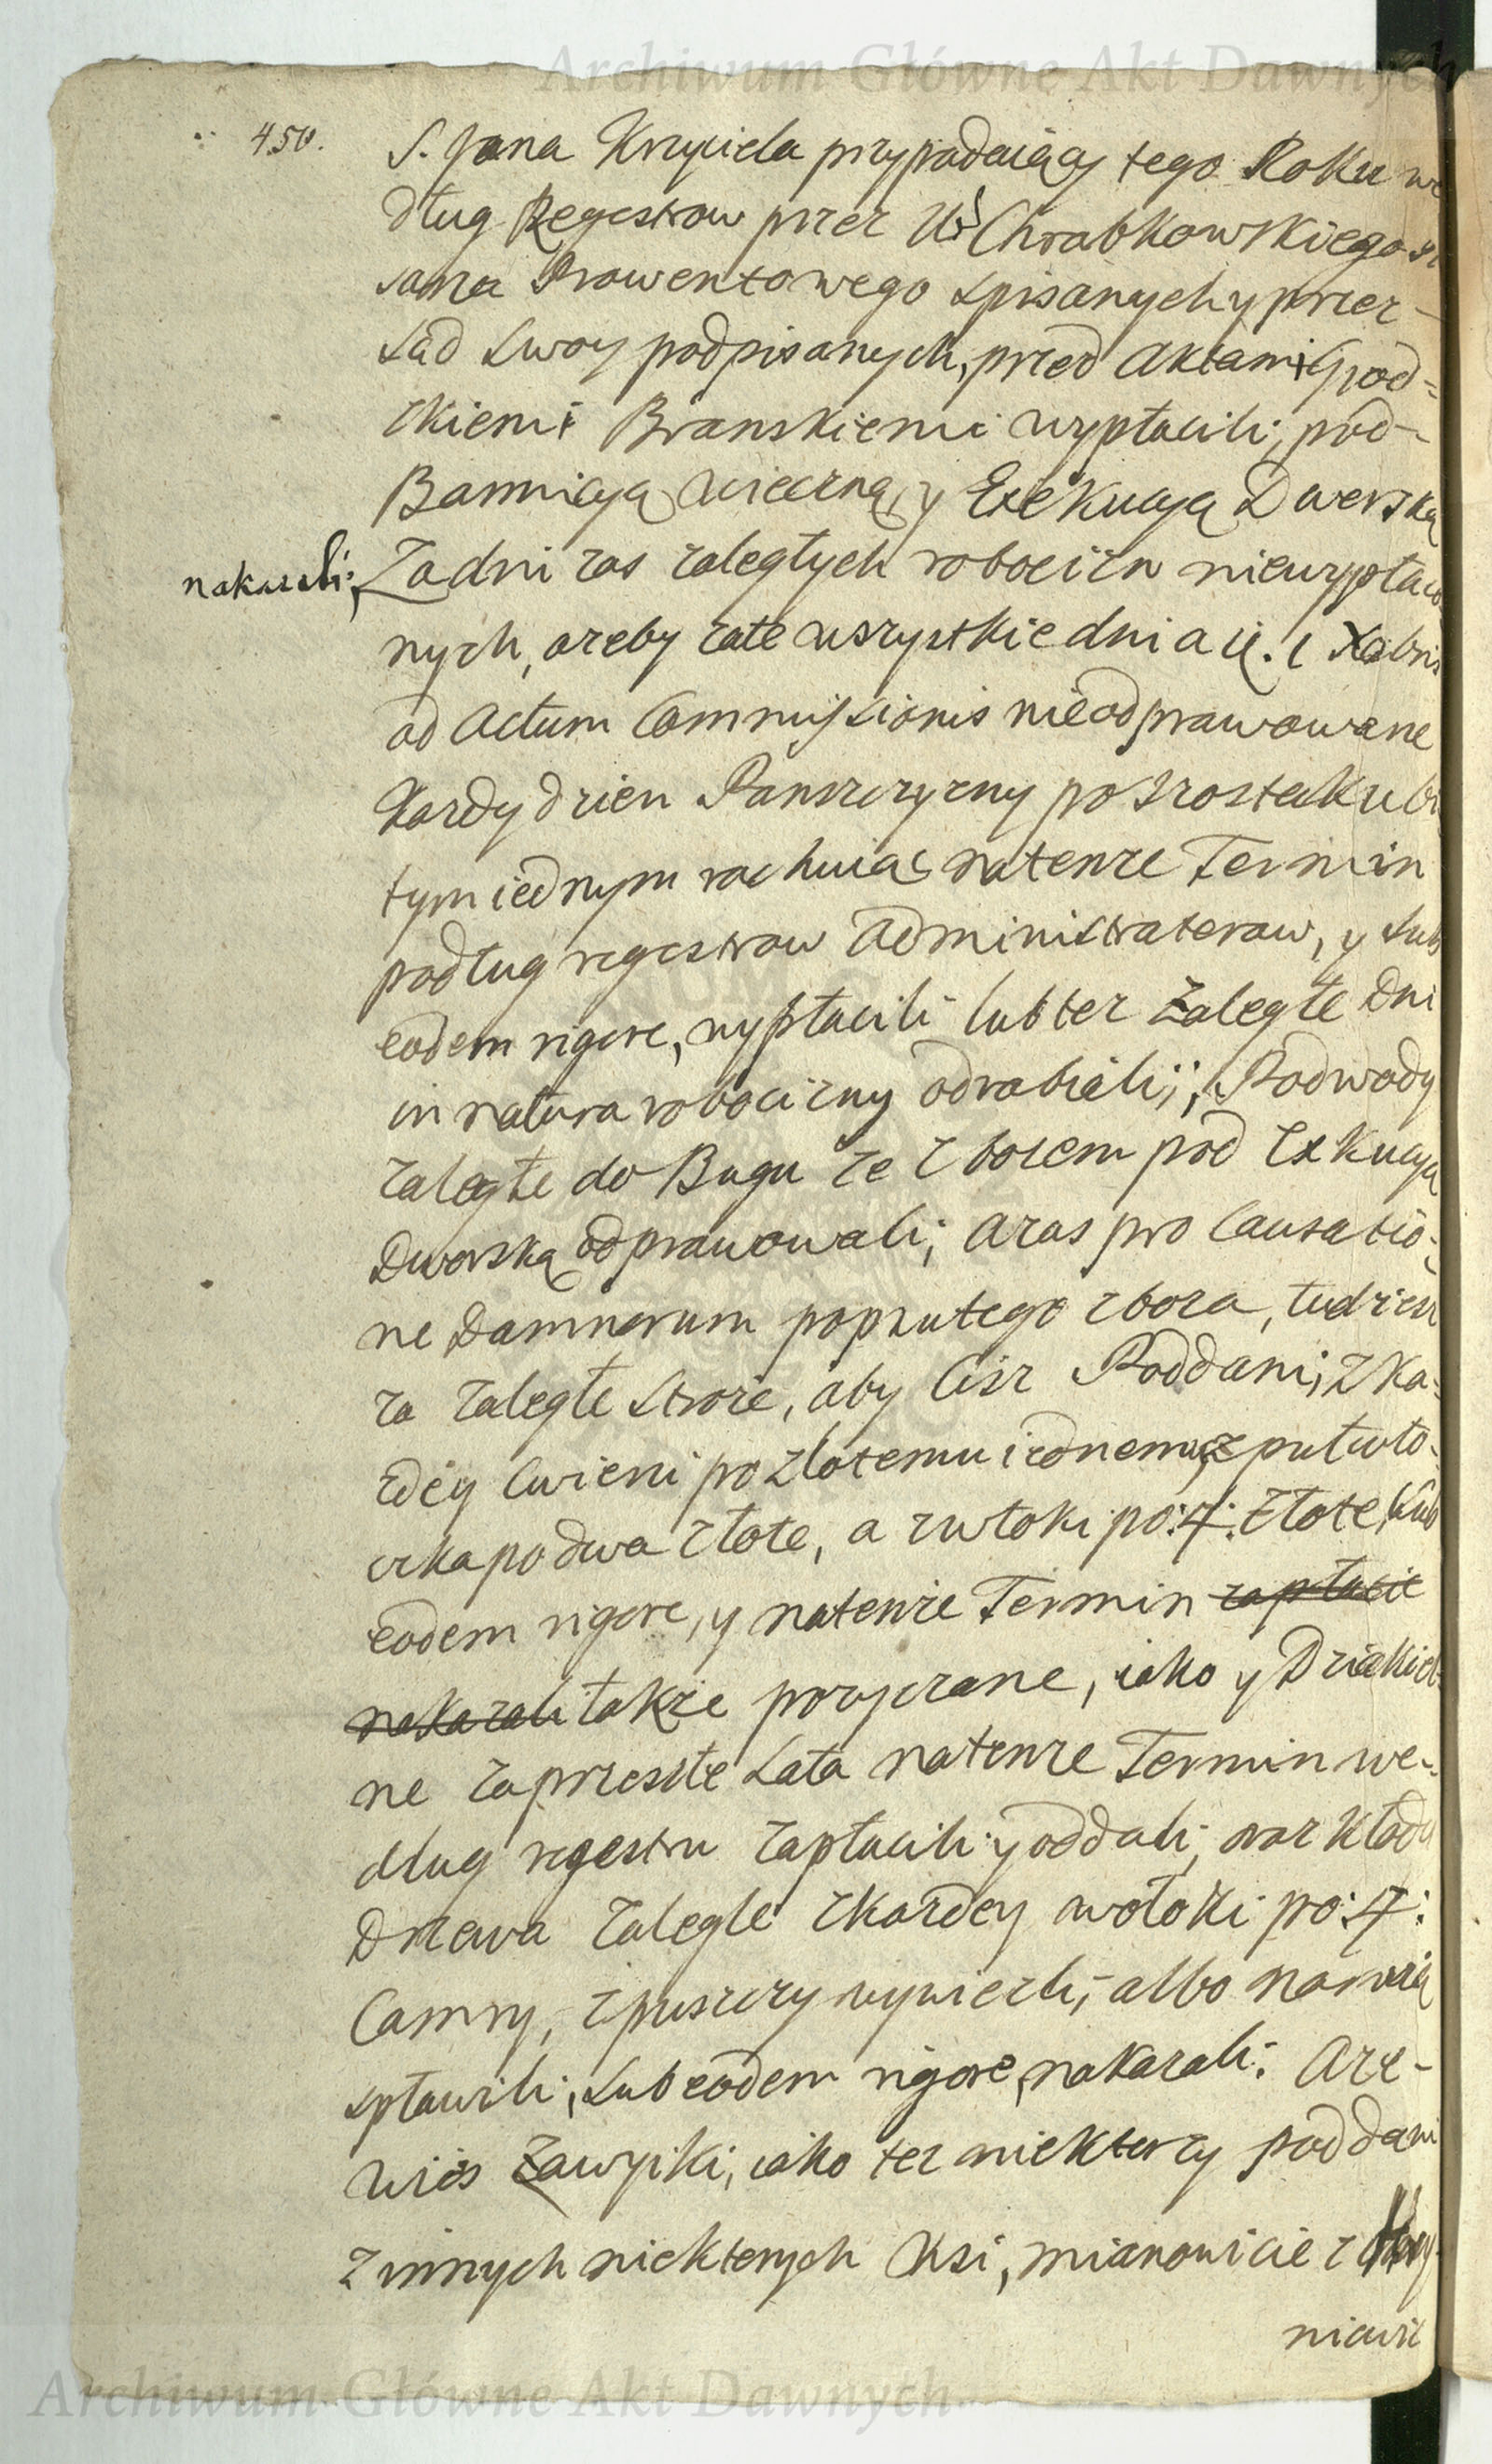 Archiwum Główne Akt Dawnych
450.
S. Jana Krzyciela przypadaiący tego Roku we
dług Regestrow przez Ur Chrabkowskiego pi
sarza Prowentowego spisanych y przez
sąd swoy podpisanych, przed Aktami Grod=
zkiemi Branskiemi wypłacili, pod-
Bannicyą wieczną, y Exekucyą Dworską
nakazali; Za dni zas zaległych robocizn niewypłaco
nych, a zeby zate wszystkie dni a
ad Actum Commissionis nieodprawowane
Kazdy dzien Panszczyzny po szostaku bi
tym iednym rachuiąc natenze Termin
podług regestrow Administratorow, y sub
eodem rigore, wypłacili lub tez Zaległe Dni
in natura robocizny odrabiali; Podwody
zaległe do Bugu ze zbozem pod Exkucyą
Dworską odprawowali; a zas pro Causatio-
ne Damnorum poprutego zboza, tudziesz
za zaległe stroze, aby ciz Poddani, z Ka-
zdey cwierci po złotemu iednemu, z pułwło-
czka po dwa złote, a z włoki po: 4: złote, sub
eodem rigore, y natenze Termin zapłacic
nakazali takze pozyczane, iako y Dziakiel-
ne za przeszłe Lata natenze Termin we-
dług regestru zapłacili y oddali, oraz Kłody
Drzewa zaległe z kazdey włoki po: 4:
Camry, z puszczy wywiezli, albo narwią
spławili, sub eodem rigore, nakazali. A ze-
wies Zawyki, iako tez niektorzy poddani
z innych niektorych Wsi, mianowicie z
niewic
Archiwum Główne Akt Dawnych